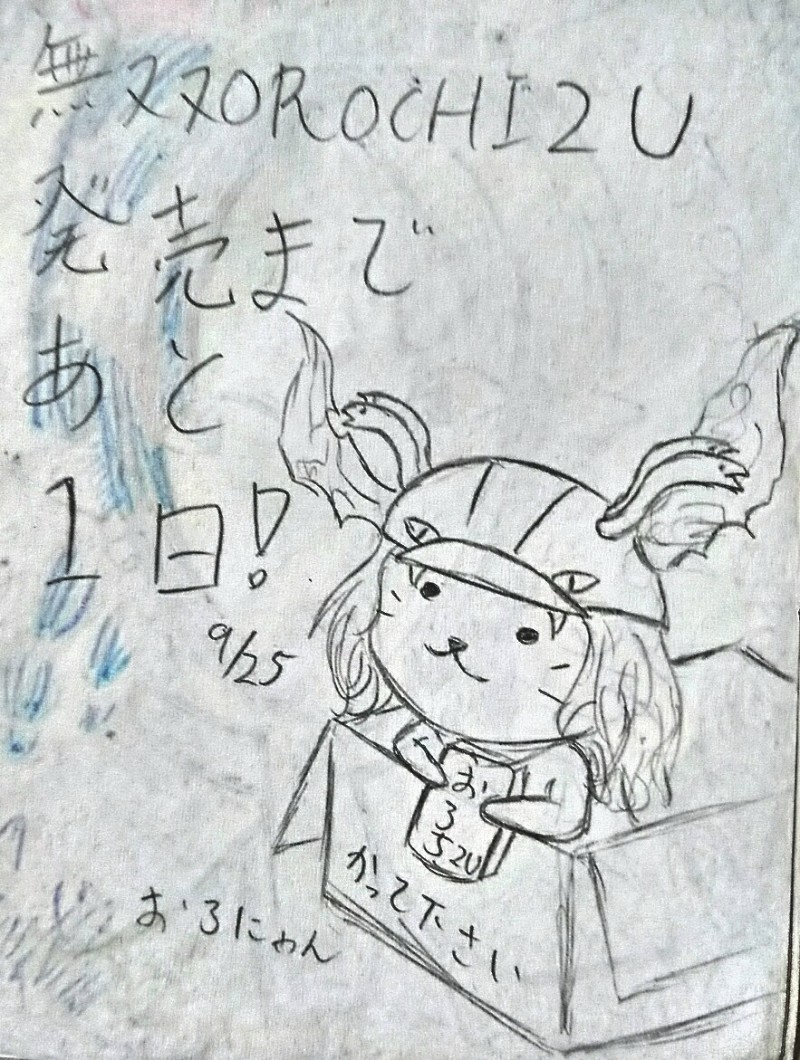 無双OROCHI2U
発売まで
あと
1日!
9/25
お
ろ
ち2U
かって下さい
おろにゃん